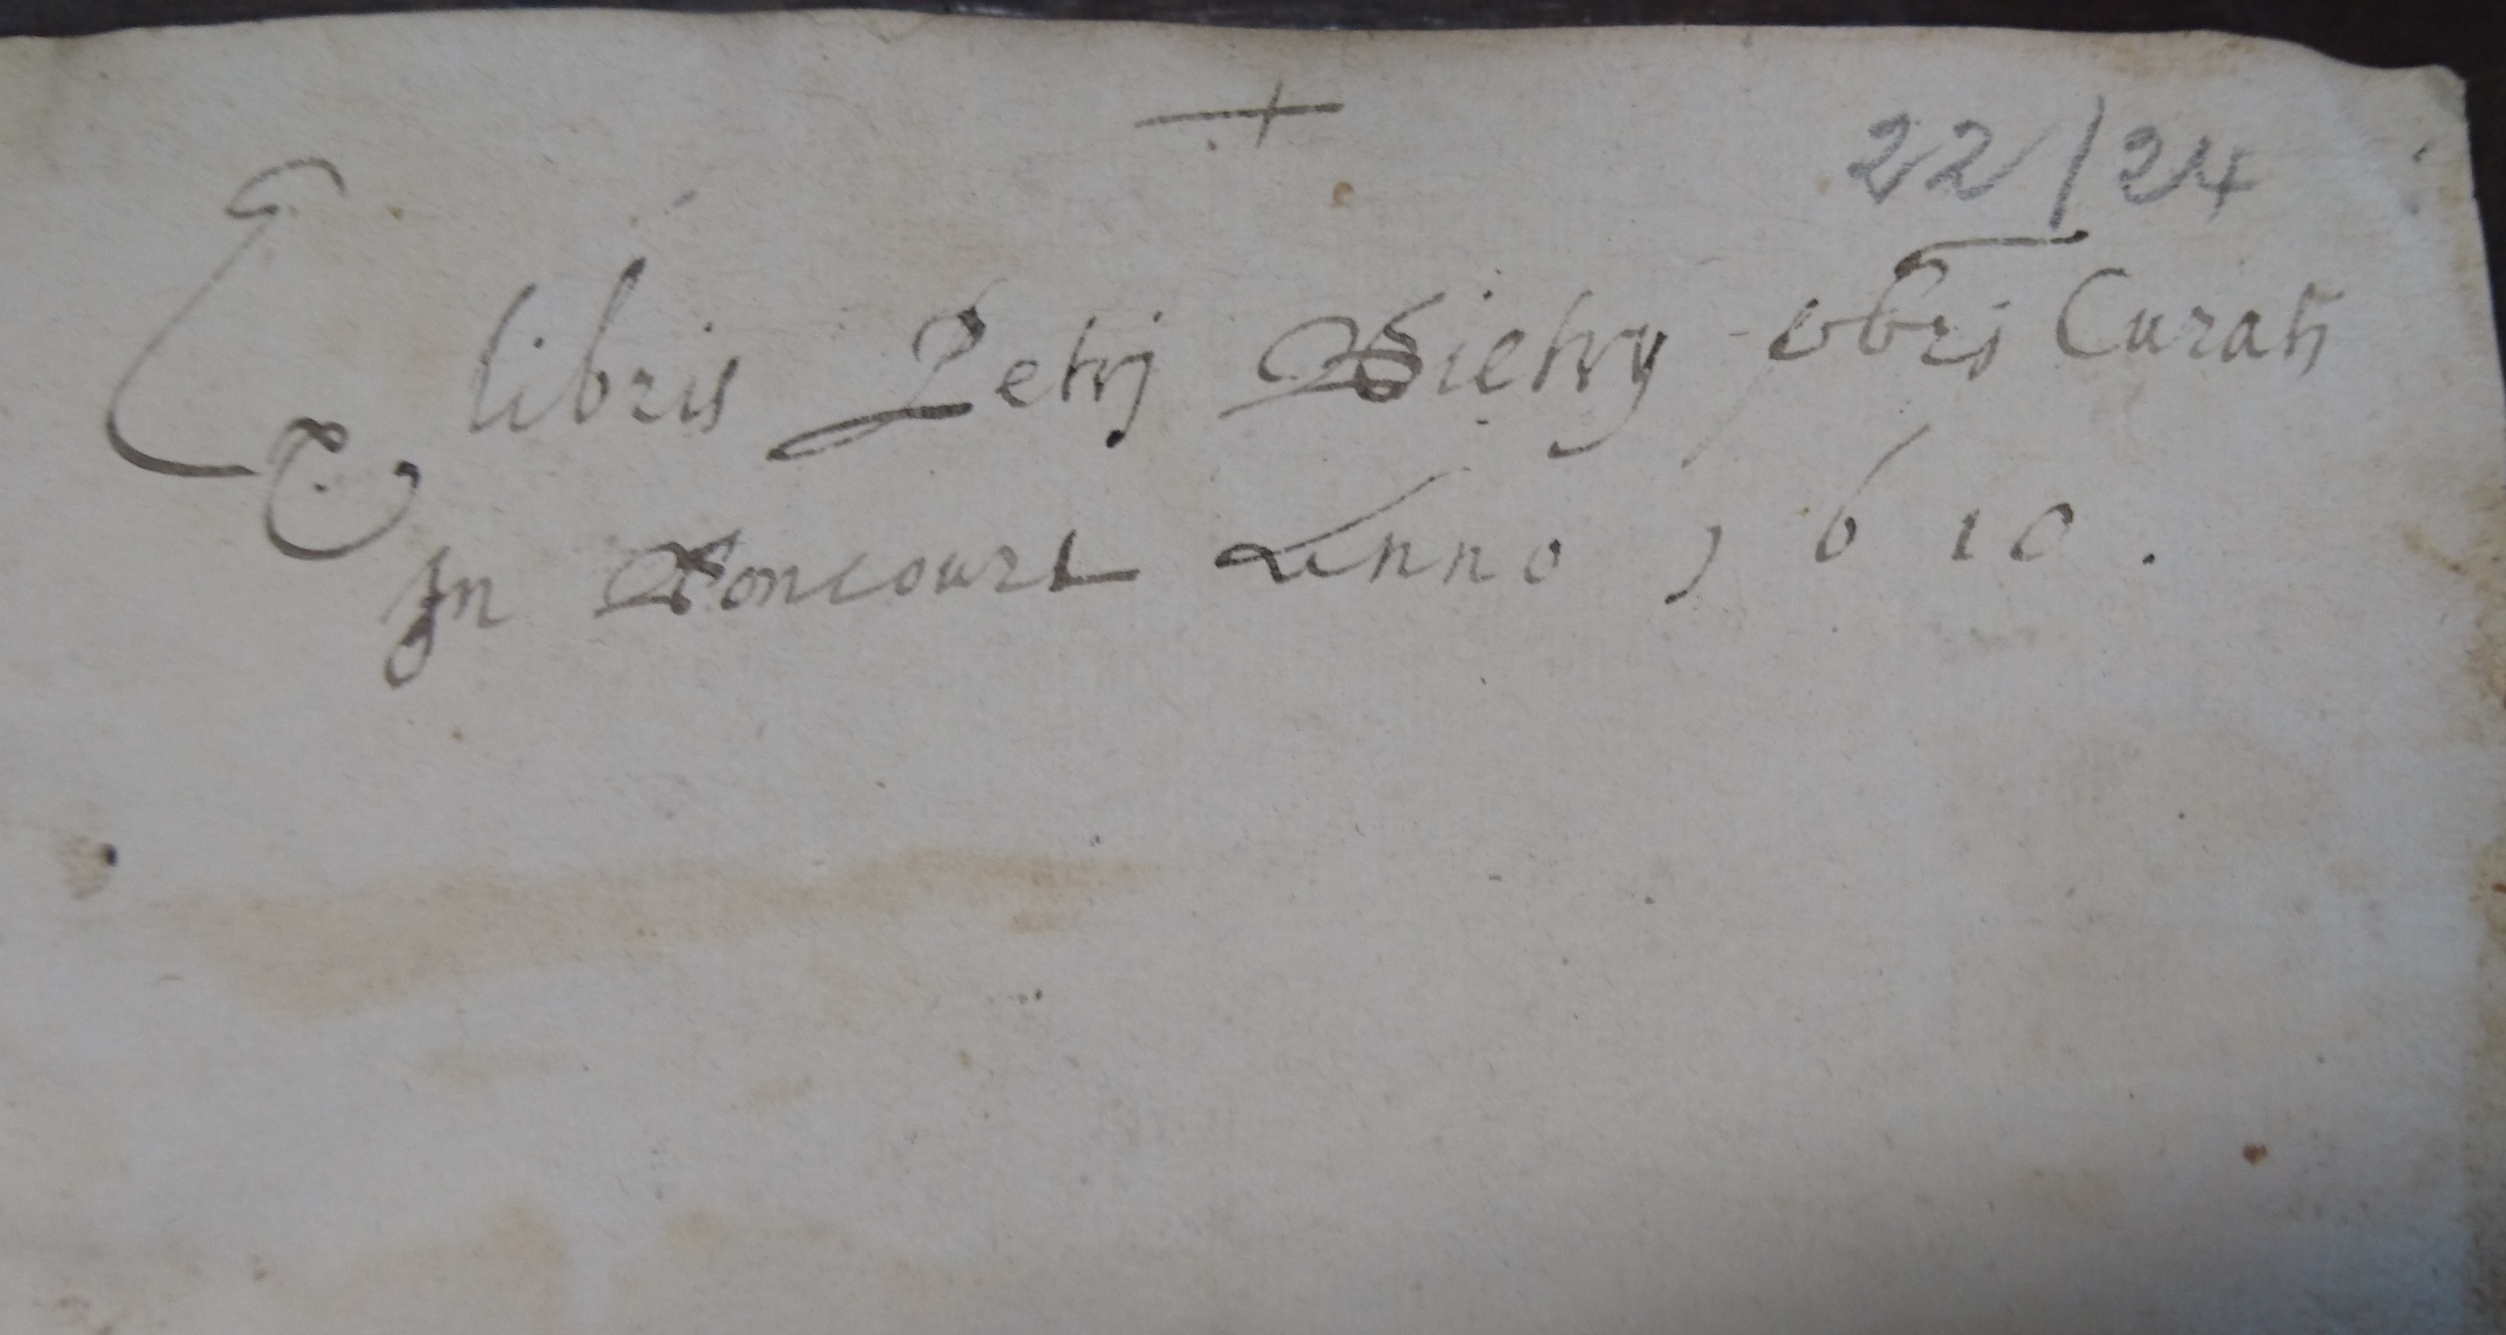 +
22/24
Ex libris Petrj Dietry pbrj Curati
In Boncourt Anno 1610.